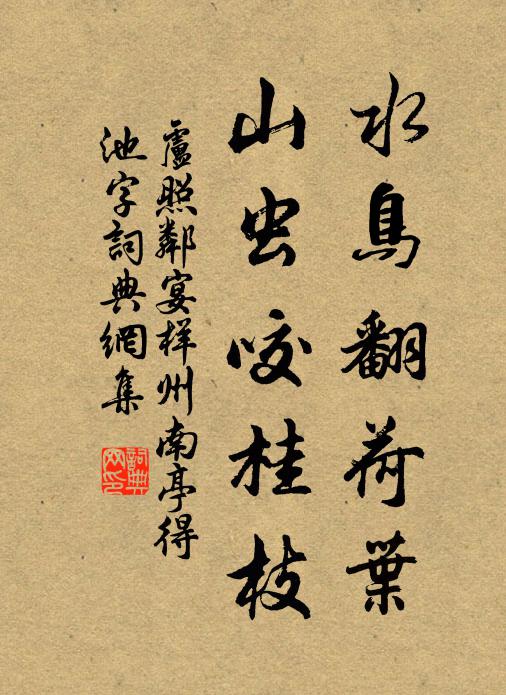 水鳥翻荷葉
山虫咬桂枝
盧照鄰宴梓州南亭得
池字詞典網集
詞典網印